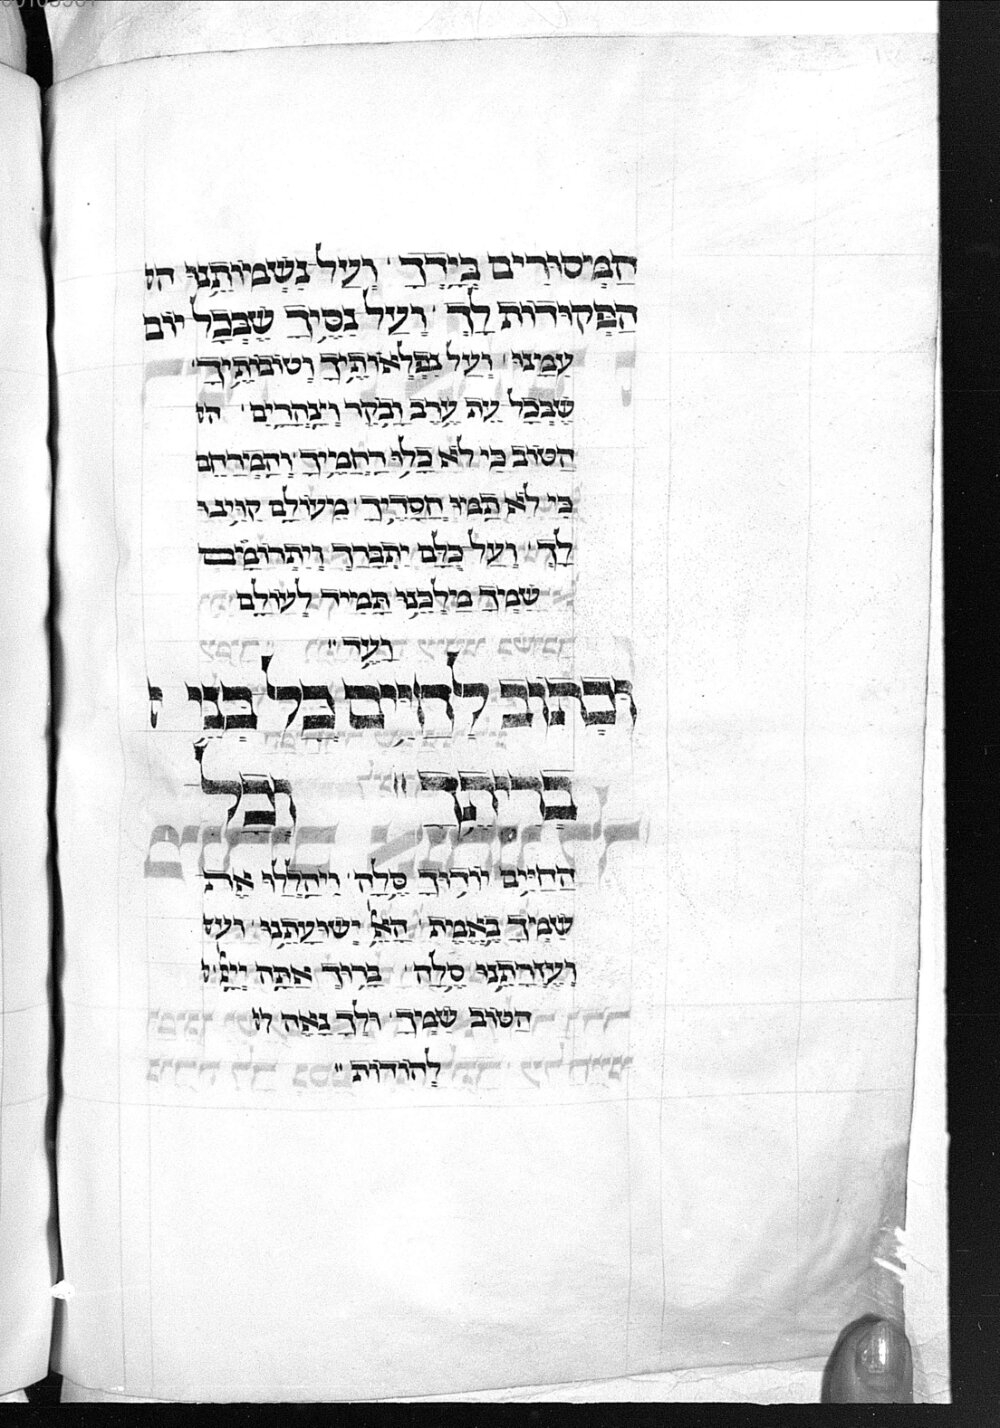 הַמְּסוּרִים בְּיָדֶךָ ׳ וְעַל נִשְׁמוֹתֵינוּ הפ
הַפְּקוּדוֹת לָךְ ׳ וְעַל נִסֶּיךָ שֶׁבְּכָל יוֹם
עִמָּנוּ ׳ וְעַל נִפְלְאוֹתֶיךָ וְטוֹבוֹתֶיךָ ׳
שֶׁבְּכָל עֵת עֶרֶב וָבֹקֶר וְצָהֳרָיִם ׳ הט
הַטּוֹב כִּי לֹא כָלוּ רַחֲמֶיךָ ׳ וְהַמְרַחֵם
כִּי לֹא תַמּוּ חֲסָדֶיךָ ׳ מֵעוֹלָם קִוִּינוּ
לָךְ ׳ וְעַל כֻּלָּם יִתְבָּרַךְ וְיִתְרוֹמָם
שִׁמְךָ מַלְכֵּנוּ תָּמִיד לְעוֹלָם
וָעֶד ״
וּכְתוֹב לְחַיִּים כָּל בְּנֵי
בְרִיתֶךָ ״ וְכָל
הַחַיִּים יוֹדוּךָ סֶּלָה ׳ וִיהַלְלוּ אֶת
שִׁמְךָ בֶּאֱמֶת ׳ הָאֵל יְשׁוּעָתֵנוּ ׳ ועז
וְעֶזְרָתֵנוּ סֶלָה ׳ בָּרוּךְ אַתָּה יְיָ
הַטּוֹב שִׁמְךָ ׳ וּלְךָ נָאֶה
לְהוֹדוֹת ״